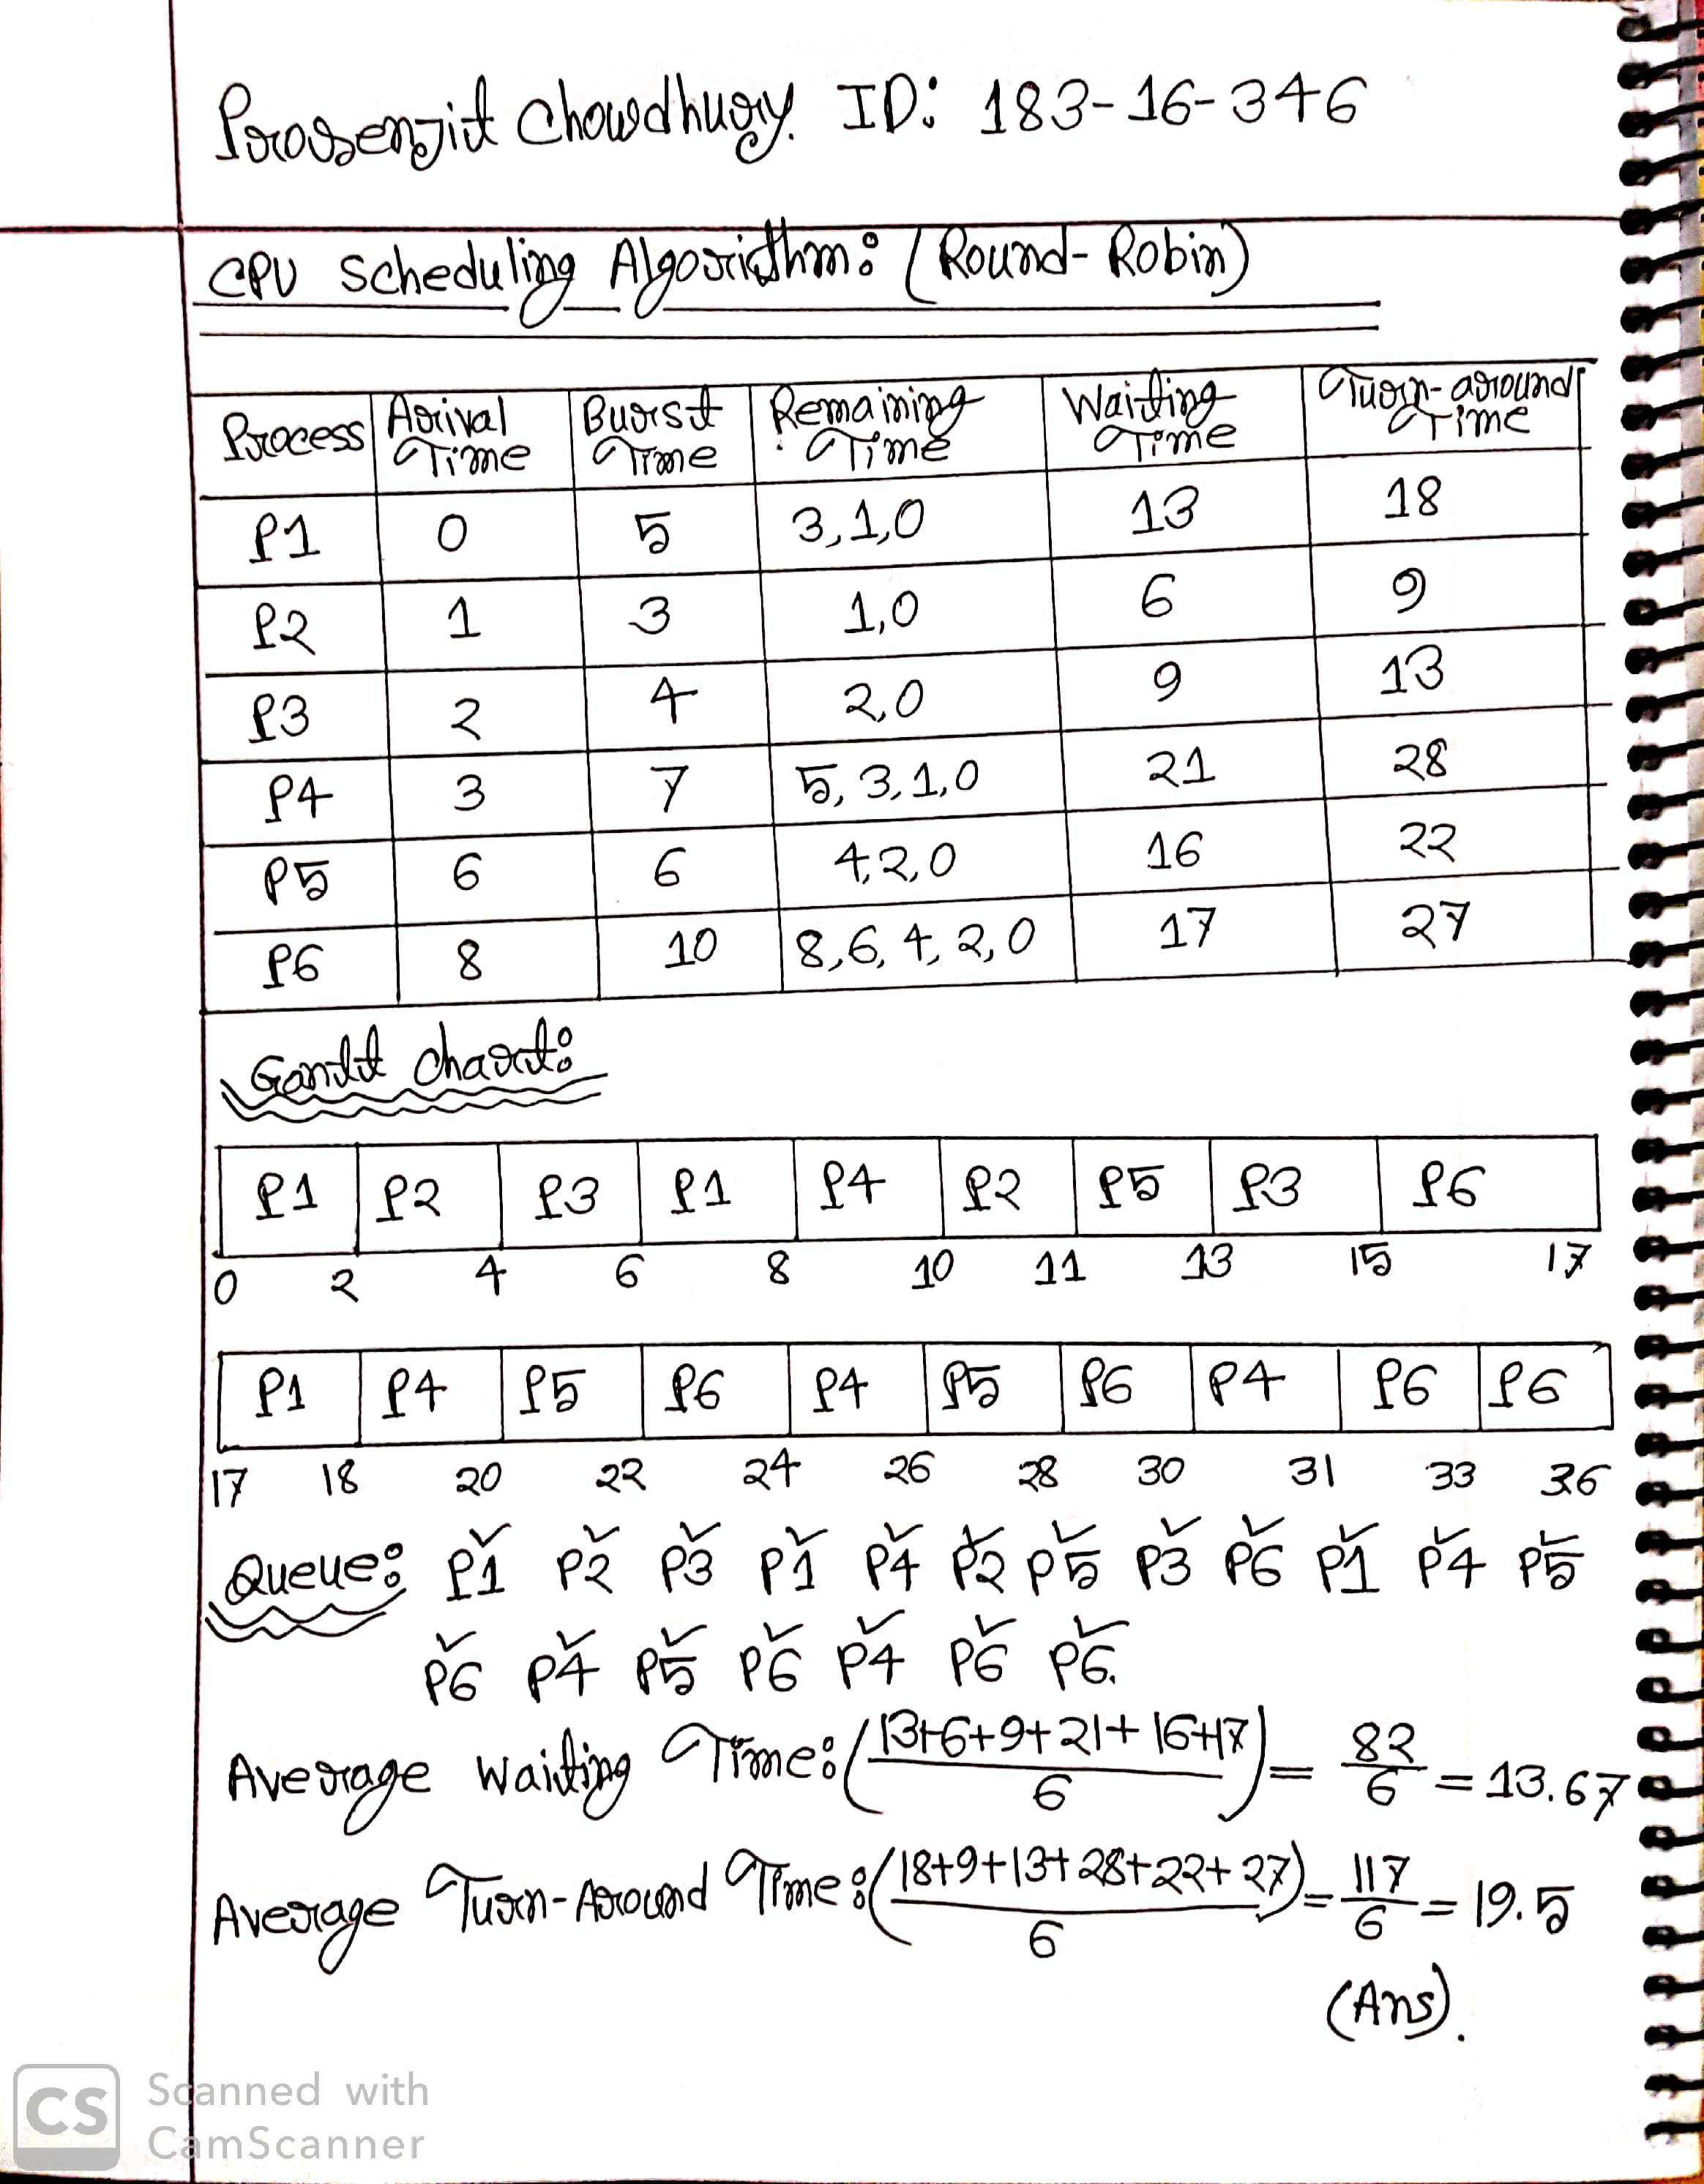 Prosenjit Chowdhury. ID: 183-16-346
CPU Scheduling Algorithm: (Round-Robin)
Process Arival Time Burst Time Remaining Time Waiting Time Turn-around Time
P1 0 5 3,1,0 13 18
P2 1 3 1,0 6 9
P3 2 4 2,0 9 13
P4 3 7 5,3,1,0 21 28
P5 6 6 4,2,0 16 22
P6 8 10 8,6,4,2,0 17 27
Gantt chart:
P1 P2 P3 P1 P4 P2 P5 P3 P6
0 2 4 6 8 10 11 13 15 17
P1 P4 P5 P6 P4 P5 P6 P4 P6 P6
17 18 20 22 24 26 28 30 31 33 36
Queue: P1 P2 P3 P1 P4 P2 P5 P3 P6 P1 P4 P5
P6 P4 P5 P6 P4 P6 P6.
Average Waiting Time: (13+6+9+21+16+17 / 6) = 82/6 = 13.67
Average Turn-Around Time: (18+9+13+28+22+27 / 6) = 117/6 = 19.5
(Ans).
CS Scanned with
CamScanner